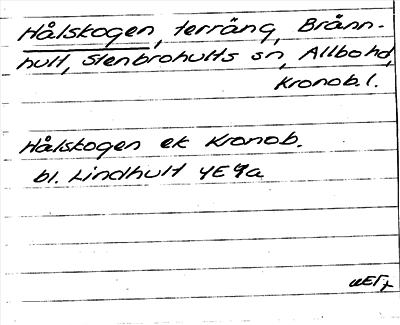 Hålskogen, terräng, Brånn-
hult, Stenbrohults sn, Allbo hd,
Kronob. l.
Hålskogen ek Kronob.
bl. Lindhult 4E 9a